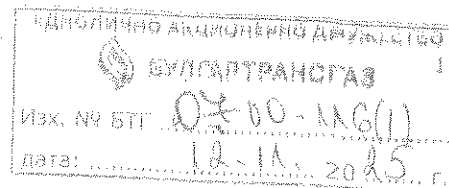 ЕДНОЛИЧНО АКЦИОНЕРНО ДРУЖЕСТВО
БУЛГАРТРАНСГАЗ 1
Изх. № БТГ 07-00-116(1)
дата: 12.11. 2025 г.